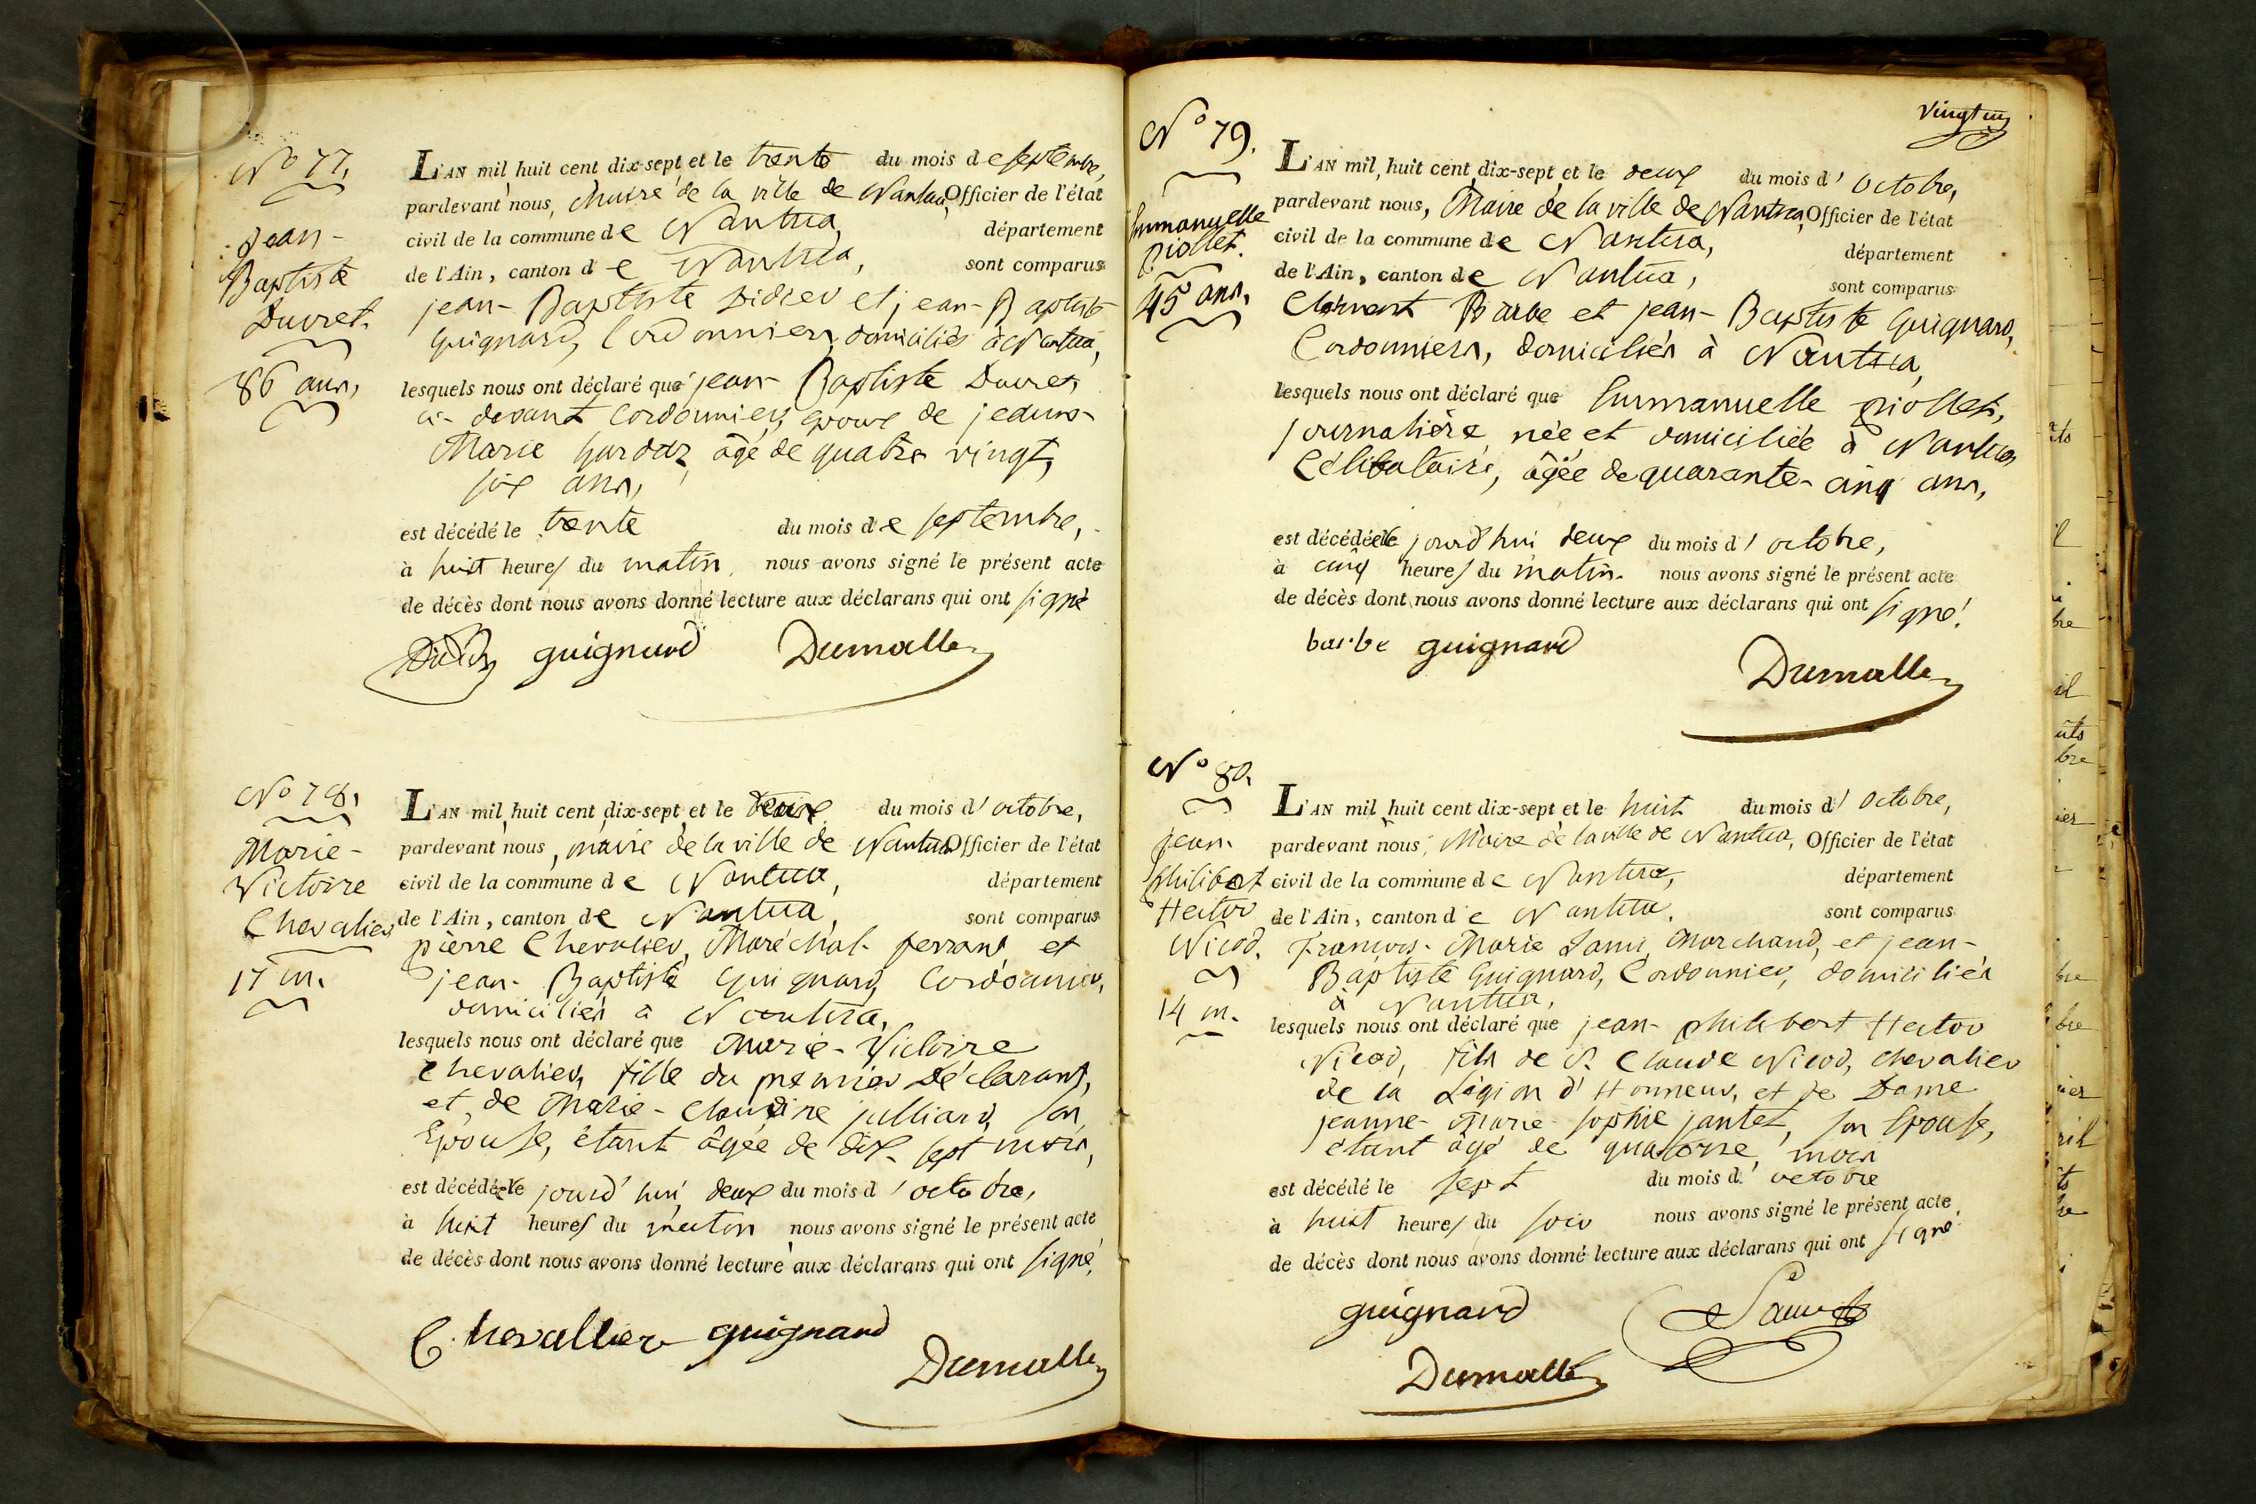 N° 77.
Jean-
Baptiste
Duvret.
86 ans,
L'AN mil huit cent dix-sept et le trente du mois de septembre,
pardevant nous, Maire de la ville de Nantua, Officier de l'état
civil de la commune de Nantua, département
de l'Ain, canton de Nantua, sont comparus
jean-Baptiste Didier et jean-Baptiste
guignard, Cordonniers, domiciliés à Nantua,
lesquels nous ont déclaré que jean-Baptiste Duvret,
ci-devant Cordonnier, époux de jeanne-
Marie âgé de quatre vingt,
six ans,
est décédé le trente du mois de septembre,
à huit heures du matin, nous avons signé le présent acte
de décès dont nous avons donné lecture aux déclarans qui ont signé
guignard Dumolle
N° 78.
Marie-
Victoire
Chevalier
17 m.
L'AN mil huit cent dix-sept et le deux du mois d'octobre,
pardevant nous, maire de la ville de Nantua Officier de l'état
civil de la commune de Nantua, département
de l'Ain, canton de Nantua, sont comparus
pierre Chevalier, Maréchal-ferrant et
jean-Baptiste Guignard, Cordonnier,
domiciliés à Nantua,
lesquels nous ont déclaré que Marie-Victoire
Chevalier, fille du premier Déclarant,
et de Marie-Claudine julliard, son
Epouse, étant âgée de dix-sept mois,
est décédée le jourd'hui deux du mois d'octobre,
à huit heures du matin nous avons signé le présent acte
de décès dont nous avons donné lecture aux déclarans qui ont signé,
Chevallier guignard
Dumolle
vingt un
N° 79.
Emmanuelle
piollet.
45 ans,
L'AN mil huit cent dix-sept et le deux du mois d'octobre,
pardevant nous, Maire de la ville de Nantua, Officier de l'état
civil de la commune de Nantua, département
de l'Ain, canton de Nantua, sont comparus
Clément Barbe et jean-Baptiste guignard,
Cordonniers, domiciliés à Nantua,
lesquels nous ont déclaré que Emmanuelle piollet,
journalière née et domiciliée à Nantua
Célibataire, âgée de quarante-cinq ans,
est décédée le jourd'hui deux du mois d'octobre,
à cinq heures du matin. nous avons signé le présent acte
de décès dont nous avons donné lecture aux déclarans qui ont signé!
barbe guignard
Dumolle
N° 80.
jean-
philibert
Hector
Nicod.
14 m.
L'AN mil huit cent dix-sept et le huit du mois d'octobre,
pardevant nous, Maire de la ville de Nantua, Officier de l'état
civil de la commune de Nantua, département
de l'Ain, canton de Nantua. sont comparus
François-Marie Lami, Marchand, et jean-
Baptiste Guignard, Cordonnier, domiciliés
à Nantua,
lesquels nous ont déclaré que jean-philibert Hector
Nicod, fils de S. Claude Nicod, chevalier
de la Légion d'Honneur, et de Dame
jeanne-Marie-Sophie jantet, son Epouse,
étant âgé de quatorze mois
est décédé le sept du mois d'octobre
à huit heures du soir nous avons signé le présent acte
de décès dont nous avons donné lecture aux déclarans qui ont signé
guignard
Dumolle